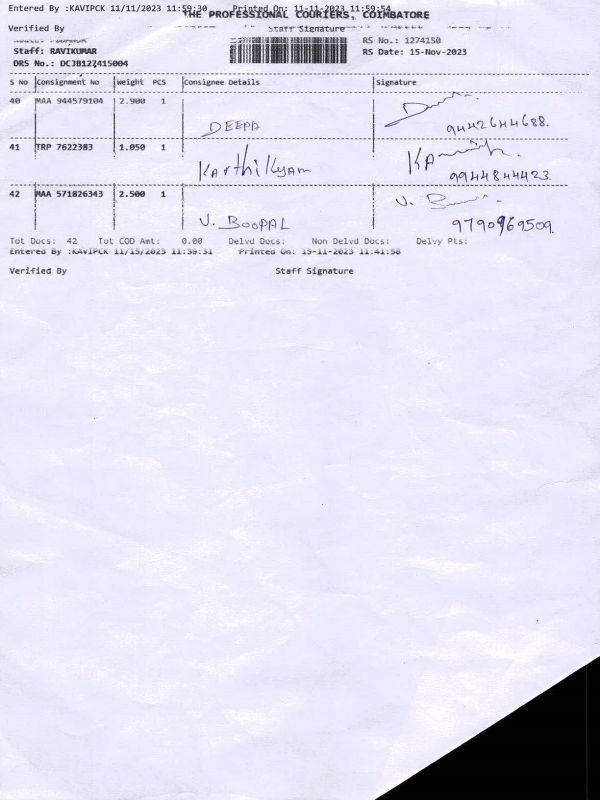 Entered By :KAVIPCK 11/11/2023 11:59:30 Printed On: 11-11-2023 11:59:54
THE PROFESSIONAL COURIERS, COIMBATORE
Verified By Staff Signature
Staff: RAVIKUMAR
RS No.: 1274150
RS Date: 15-Nov-2023
DRS No.: DCJB127415004
S No Consignment No Weight PCS Consignee Details Signature
40 MAA 944579104 2.900 1
DEEPA 9442644688.
41 TRP 7622383 1.050 1
Karthikyam 9944844423
42 MAA 571826343 2.500 1
V. BOOPAL 9790969509
Tot Docs: 42 Tot COD Amt: 0.00 Delvd Docs: Non Delvd Docs: Delvy Pts:
Entered By :KAVIPCK 11/15/2023 11:39:31 Printed On: 15-11-2023 11:41:50
Verified By Staff Signature